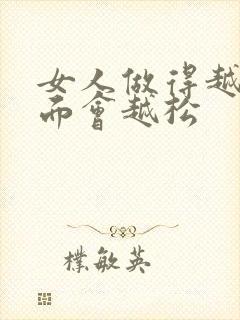 女人做得越
而會越松
樸敏英